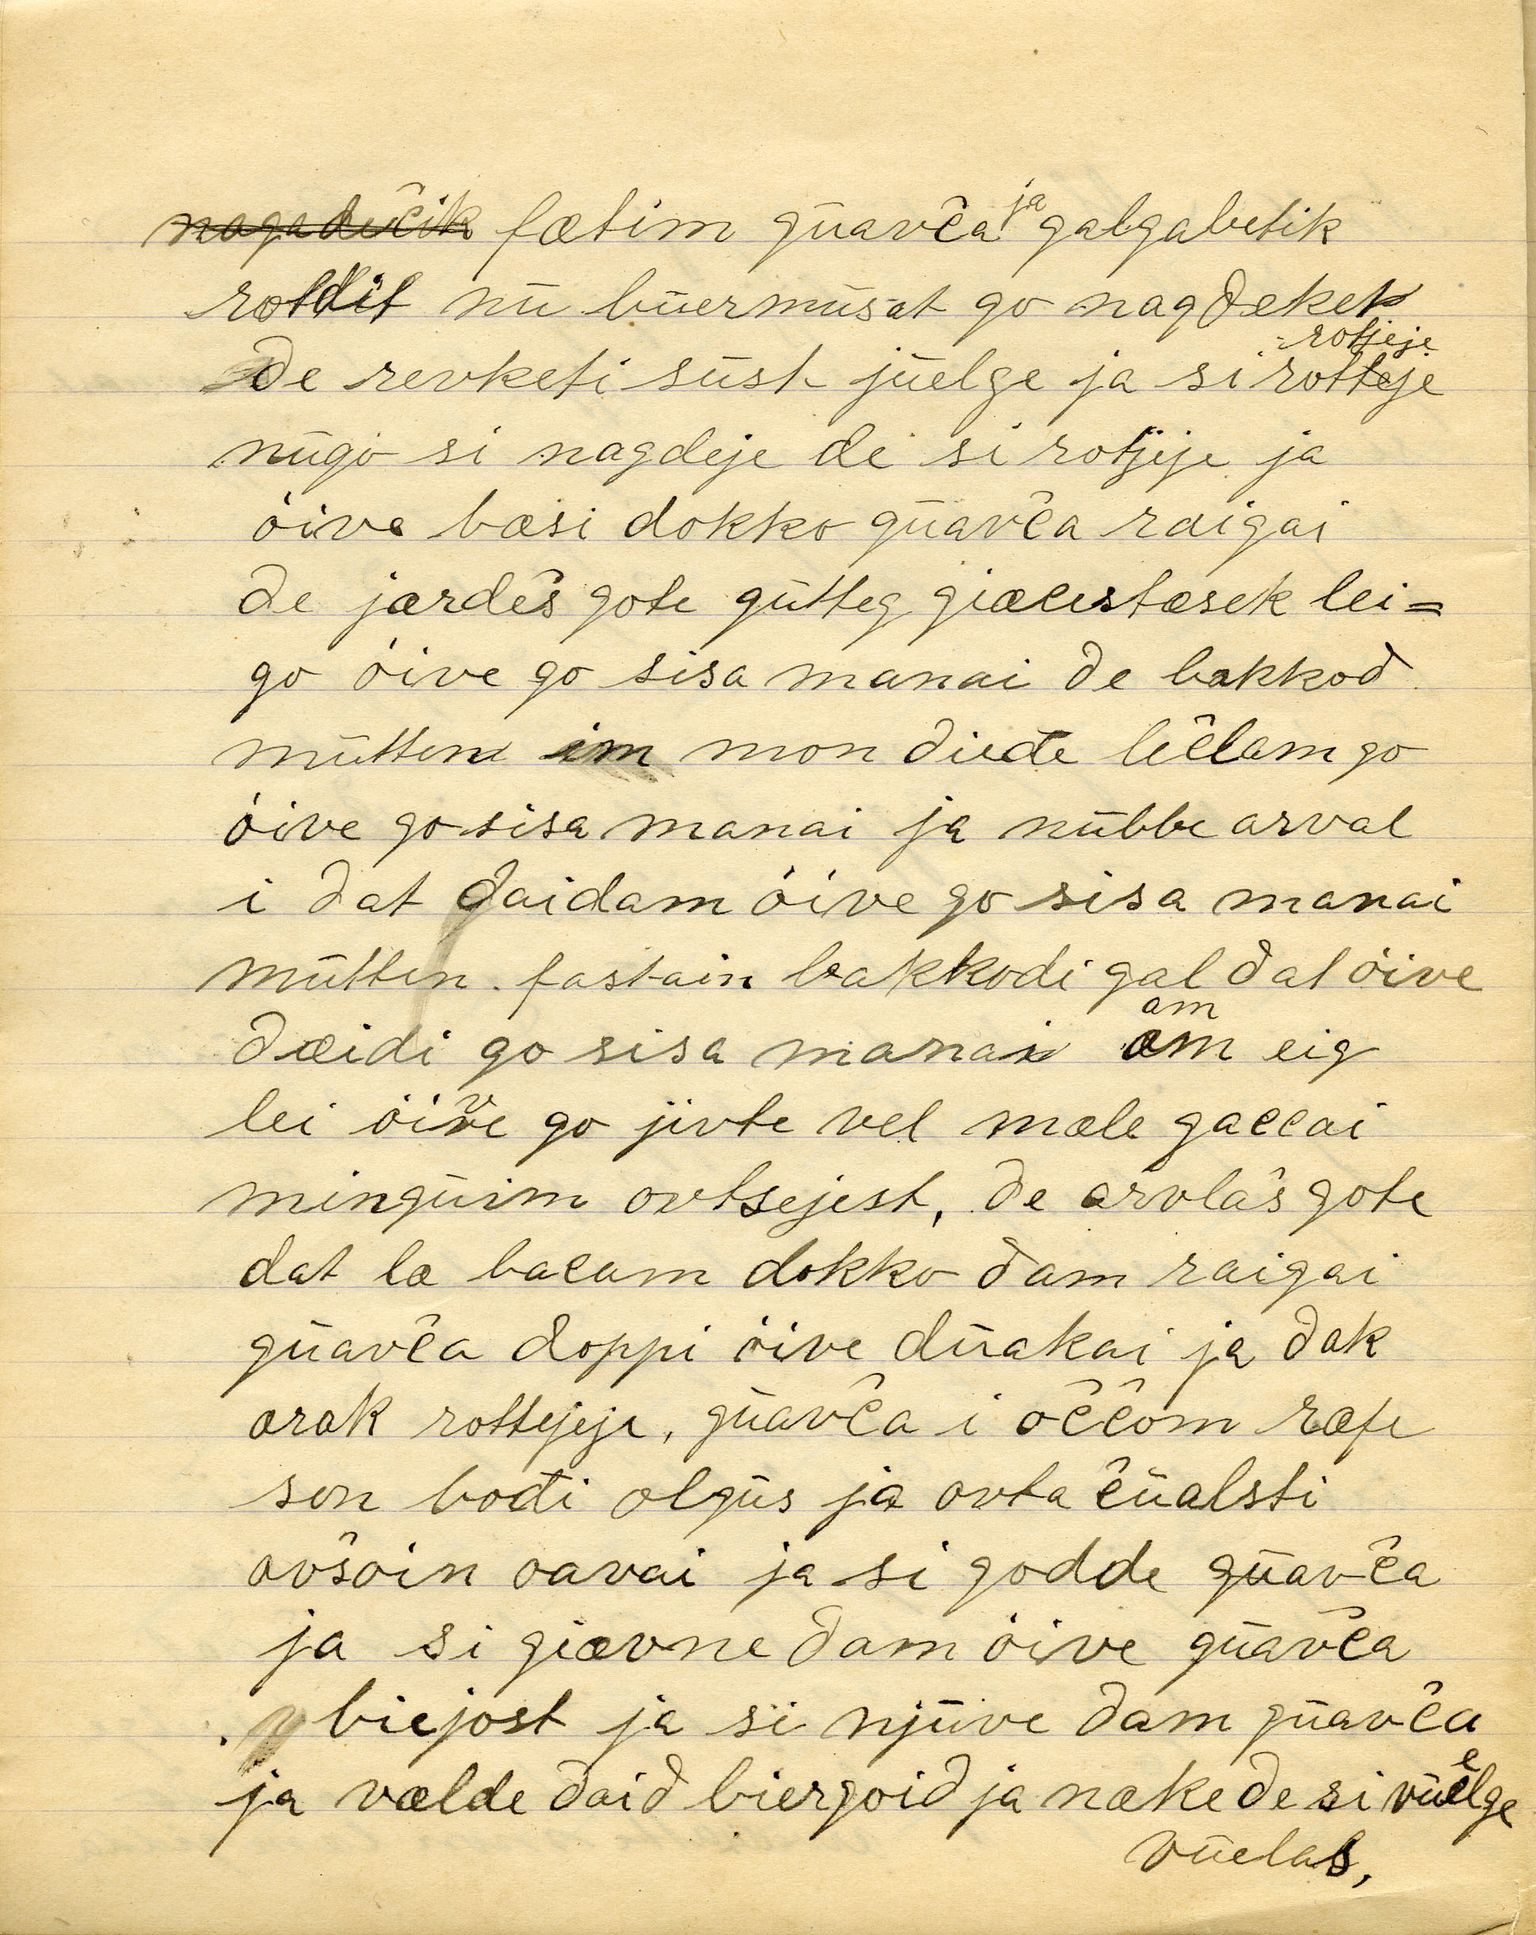 fætim güavča ja galgabetik
rotdit nü büermüsat go nagdekek
de revketi süst jüelge ja si rotjeje
nügo si nagdeje de si rotjeje ja
öive bæsi dokko güavča raigai
de jærdeš gote gütteg giæcestæsek lei=
go öive go sisa manai de bakkod
müttem im mon diede lečlam go
öive go sisa manai ja nübbe arval
i dat daidam öive go sisa manai
mütten. fastain bakkodi gal dat öive
dæidi go sisa manai am eig
lei öive go jivte vel mæle gaccai
mingüim ovtsejest, de arvlaš gote
dat læ bacam dokko dam raigai
güavča doppi öive düakai ja dak
arak rottejeje, güavča i öččom ræfe
son bođi olgüs ja ovta čüalsti
ovšöin oavai ja si godde güavča
ja si giævne dam öive güavča
biejost ja si njüve dam güavča
ja vælde daid biergoid ja næke de si vüelge
vüelas,